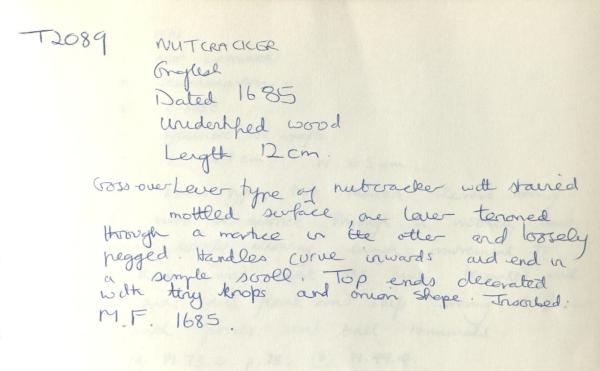 T2089 NUTCRACKER
English
Dated 1685
Unidentified wood
Length 12cm.
Cross-over Lever type of nutcracker with stained
mottled surface, one lever tenoned
through a mortice in the other and loosely
pegged. Handles curve inwards and end in
a simple scroll. Top ends decorated
with tiny knops and onion shape. Inscribed:
M.F. 1685.